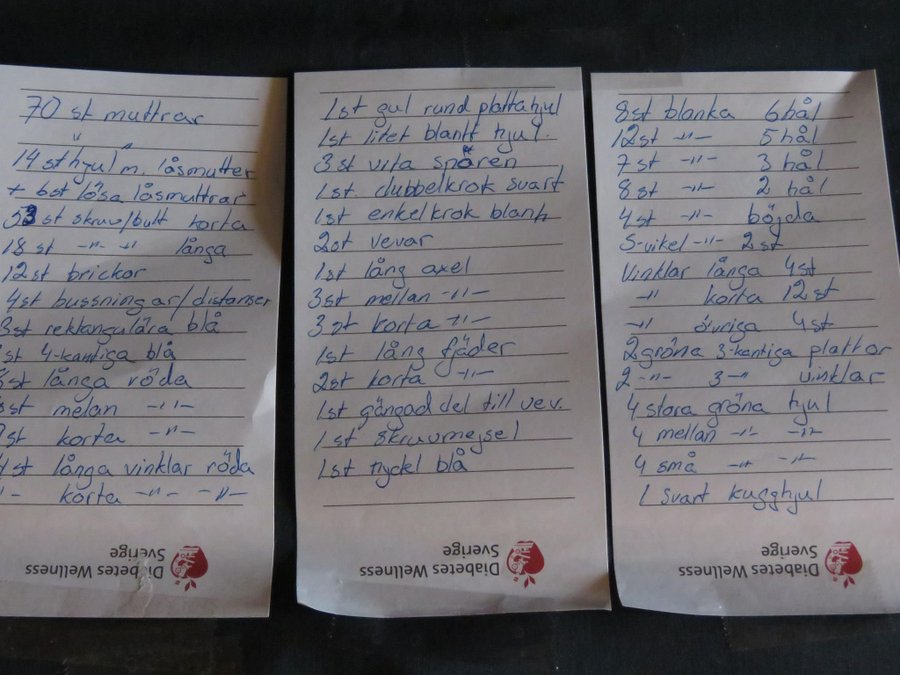 70 st muttrar
14 st hjul m. låsmutter
+ 6st lösa låsmuttrar
53 st skruv/bult korta
18 st -"- -"- långa
12st brickor
4st bussningar/distanser
3st rektangulära blå
st 4-kantiga blå
st långa röda
st melan -"-
st korta -"-
st långa vinklar röda
-"- korta -"- -"-
Diabetes Wellness
Sverige
1st gul rund plattahjul
1st litet blantt hjul.
3st vita spåren
1st. dubbelkrok svart
1st enkelkrok blank
2st vevar
1st lång axel
3st mellan -"-
3st korta -"-
1st lång fjäder
2st korta -"-
1st gängad del till vev.
1st skruvmejsel
1st nyckel blå
Diabetes Wellness
Sverige
8st blanka 6 hål
12st -"- 5 hål
7st -"- 3 hål
8st -"- 2 hål
4st -"- böjda
S-vikel -"- 2st
Vinklar långa 4st
-"- korta 12st
-"- övriga 4st
2 gröna 3-kantiga plattor
2 -"- 3 -"- vinklar
4 stora gröna hjul
4 mellan -"- -"-
4 små -"- -"-
1 svart kugghjul
Diabetes Wellness
Sverige